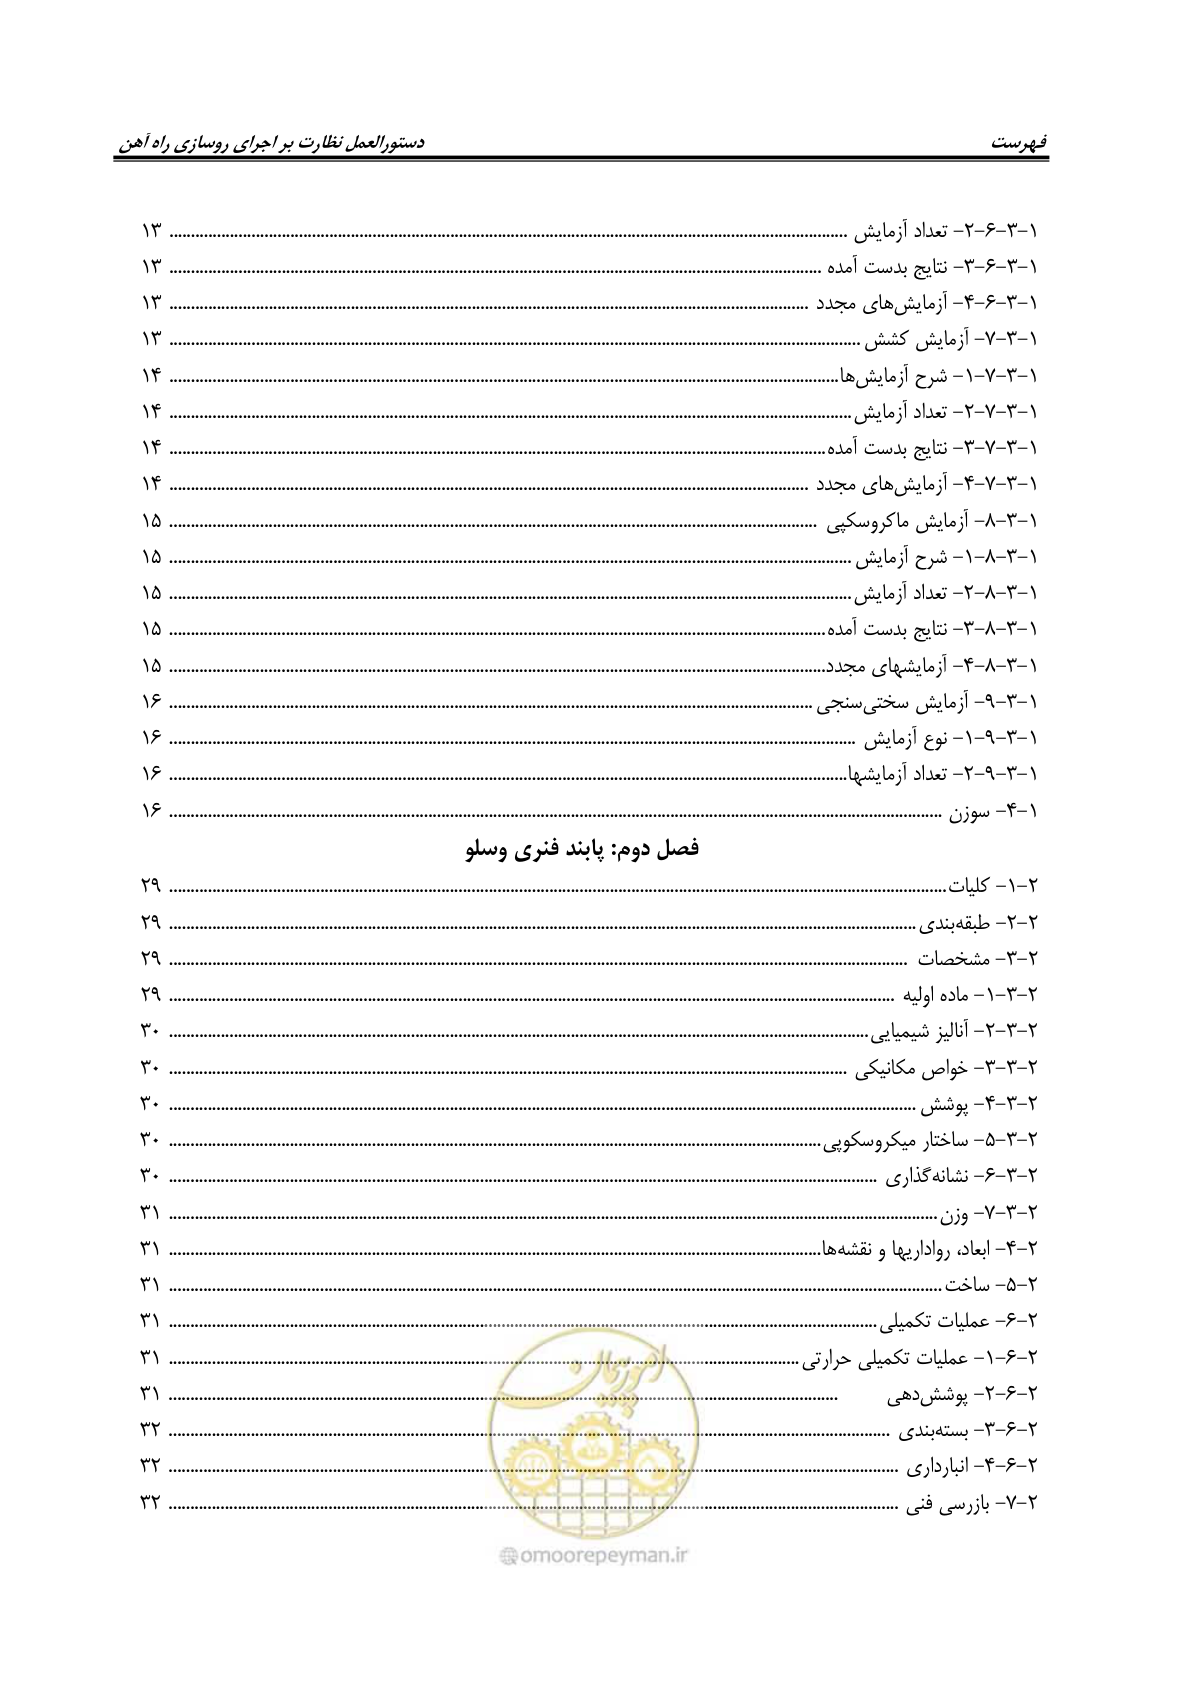 فهرست دستورالعمل نظارت بر اجرای روسازی راه آهن
۱-۳-۶-۲- تعداد آزمایش ........ ۱۳
۱-۳-۶-۳- نتایج بدست آمده ........ ۱۳
۱-۳-۶-۴- آزمایش‌های مجدد ........ ۱۳
۱-۳-۷- آزمایش کشش ........ ۱۳
۱-۳-۷-۱- شرح آزمایش‌ها ........ ۱۴
۱-۳-۷-۲- تعداد آزمایش ........ ۱۴
۱-۳-۷-۳- نتایج بدست آمده ........ ۱۴
۱-۳-۷-۴- آزمایش‌های مجدد ........ ۱۴
۱-۳-۸- آزمایش ماکروسکپی ........ ۱۵
۱-۳-۸-۱- شرح آزمایش ........ ۱۵
۱-۳-۸-۲- تعداد آزمایش ........ ۱۵
۱-۳-۸-۳- نتایج بدست آمده ........ ۱۵
۱-۳-۸-۴- آزمایشهای مجدد ........ ۱۵
۱-۳-۹- آزمایش سختی‌سنجی ........ ۱۶
۱-۳-۹-۱- نوع آزمایش ........ ۱۶
۱-۳-۹-۲- تعداد آزمایشها ........ ۱۶
۱-۴- سوزن ........ ۱۶
فصل دوم: پابند فنری وسلو
۲-۱- کلیات ........ ۲۹
۲-۲- طبقه‌بندی ........ ۲۹
۲-۳- مشخصات ........ ۲۹
۲-۳-۱- ماده اولیه ........ ۲۹
۲-۳-۲- آنالیز شیمیایی ........ ۳۰
۲-۳-۳- خواص مکانیکی ........ ۳۰
۲-۳-۴- پوشش ........ ۳۰
۲-۳-۵- ساختار میکروسکوپی ........ ۳۰
۲-۳-۶- نشانه‌گذاری ........ ۳۰
۲-۳-۷- وزن ........ ۳۱
۲-۴- ابعاد، رواداریها و نقشه‌ها ........ ۳۱
۲-۵- ساخت ........ ۳۱
۲-۶- عملیات تکمیلی ........ ۳۱
۲-۶-۱- عملیات تکمیلی حرارتی ........ ۳۱
۲-۶-۲- پوشش‌دهی ........ ۳۱
۲-۶-۳- بسته‌بندی ........ ۳۲
۲-۶-۴- انبارداری ........ ۳۲
۲-۷- بازرسی فنی ........ ۳۲
امور پیمان
@omoorepeyman.ir